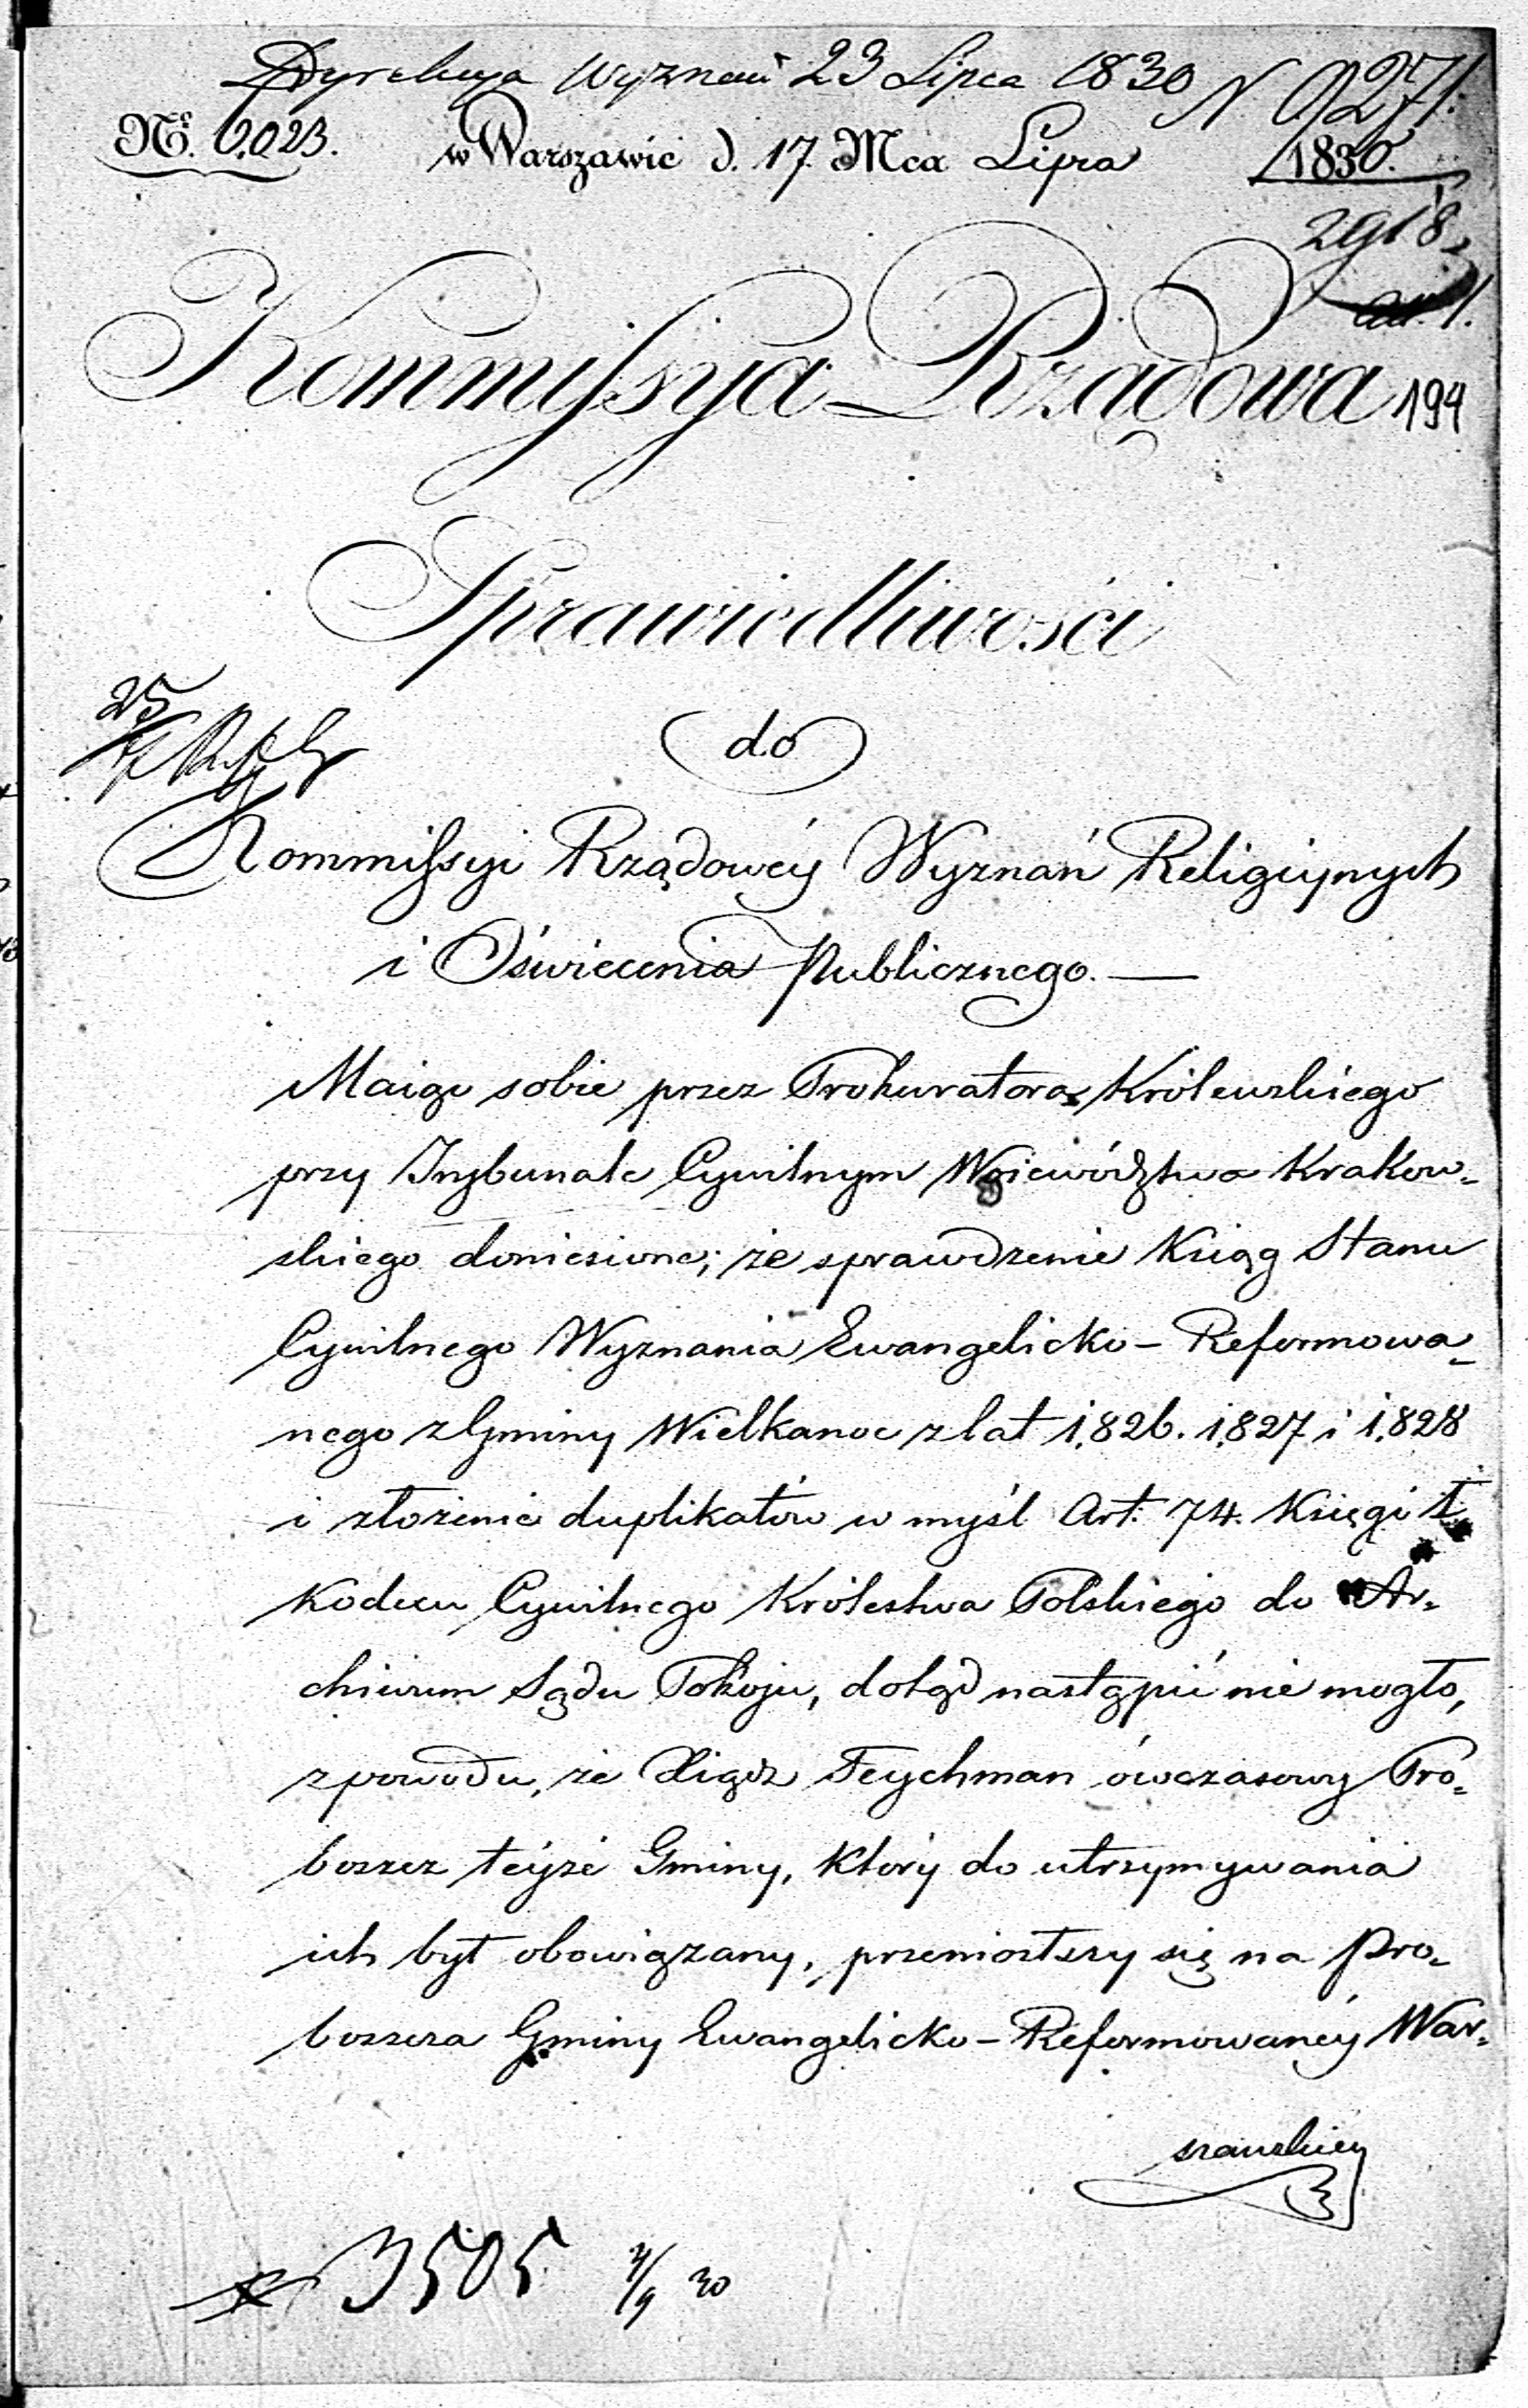 Dyrekcya Wyznań 23 Lipca 1830 N 9271.
Nr. 6.023. w Warszawie d. 17. Mca Lipca 1830.
2918
ad. 1.
Kommissya Rządowa 194
Sprawiedliwości
25
do
Kommissyi Rządowéy Wyznań Religiynych
i Oświecenia Publicznego. —
Maiąc sobie przez Prokuratora Królewskiego
przy Trybunale Cywilnym Woiewództwa Krakow=
skiego doniesione; że sprawdzenie Ksiąg Stanu
Cywilnego Wyznania Ewangelicko - Reformowa=
nego z Gminy Wielkanoc z lat 1.826. 1.827 i 1.828
i złożenie duplikatów w myśl Art. 74. Księgi I.
Kodexu Cywilnego Królestwa Polskiego do Ar=
chiwum Sądu Pokoju, dotąd nastąpić nie mogło,
z powodu, że Xiądz Teychman ówczasowy Pro=
boszcz teyże Gminy, który do utrzymywania
ich był obowiązany, przeniosłszy się na Pro=
boszcza Gminy Ewangelicko - Reformowanéy War=
szawskiey
3505 4/9 30